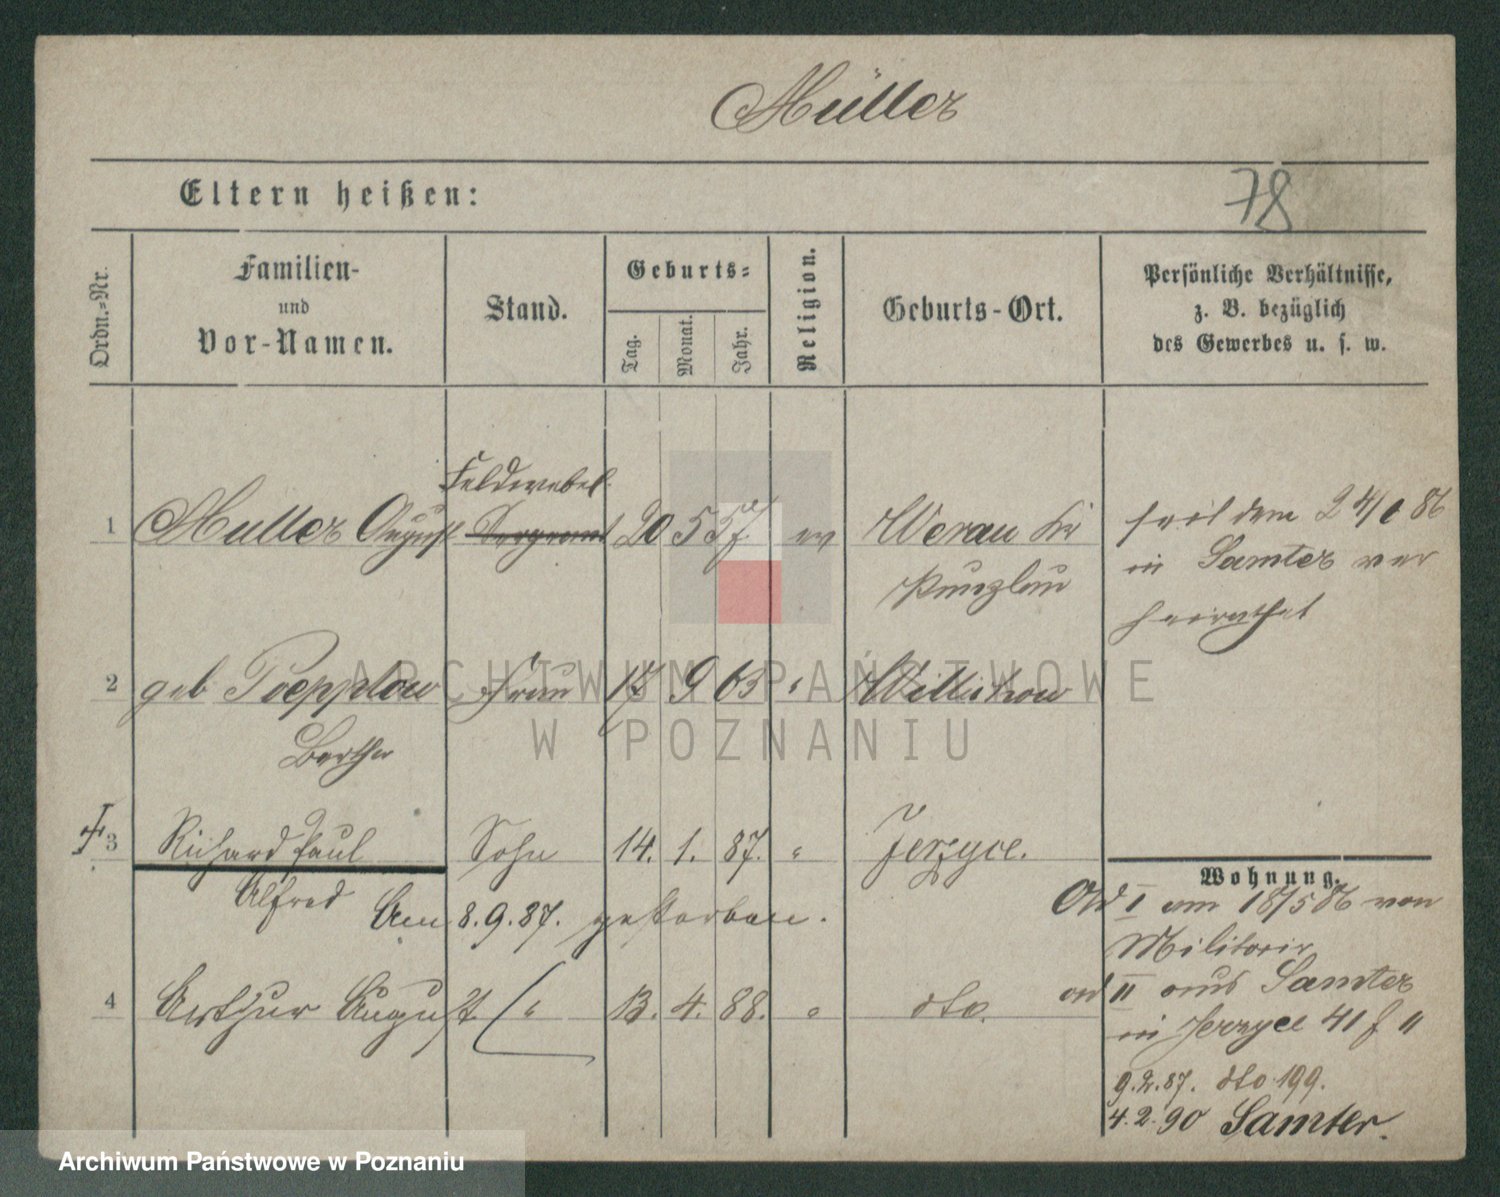 Müller
Eltern heißen:
78
Ordn.-Nr.
Familien-
und
Vor-Namen.
Stand.
Geburts-
Tag.
Monat.
Jahr.
Religion.
Geburts-Ort.
Persönliche Verhältnisse,
z. B. bezüglich
des Gewerbes u. s. w.
Feldwebel
1 Müller August Sergeant 20 5 57 ev Werau Kr
Bunzlau
seit dem 24/1 86
in Samter ver
heirathet
2 geb Poepplow Frau 17 9 63 "
Bertha
3 Richard Paul Sohn 14. 1. 87. " Jerzyce.
Alfred Am 8.9.87. gestorben.
4 Arthur August " 13. 4. 88. " dto.
Wohnung.
ad I am 18/5 86 von
Militair
ad II aus Samter
in Jerzyce 41 f "
9.2.87. dto 199.
4.2.90 Samter.
ARCHIWUM PAŃSTWOWE
W POZNANIU
Archiwum Państwowe w Poznaniu